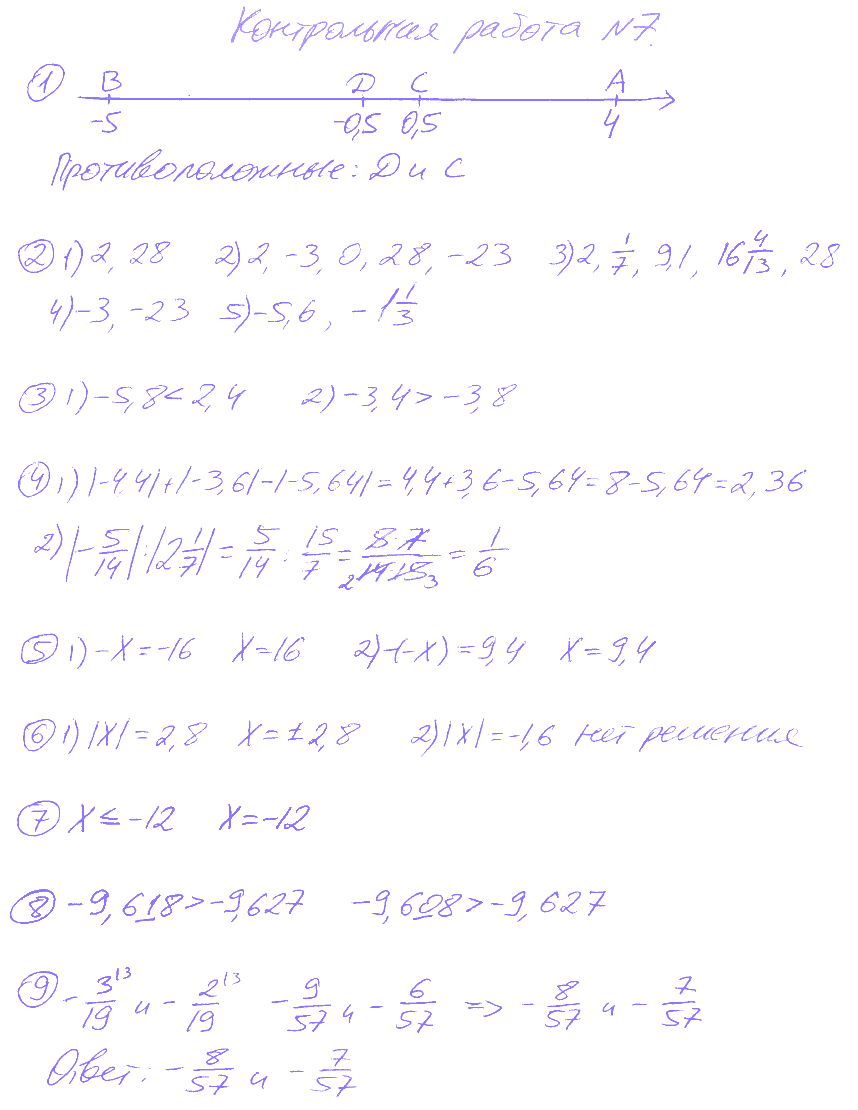 Контрольная работа №7.
① B D C A
-5 -0,5 0,5 4
Противоположные: D и C
② 1) 2, 28 2) 2, -3, 0, 28, -23 3) 2, 1/7, 9,1, 16 4/13, 28
4) -3, -23 5) -5,6, -1 1/3
③ 1) -5,8 < 2,4 2) -3,4 > -3,8
④ 1) |-4,4| + |-3,6| - |-5,64| = 4,4 + 3,6 - 5,64 = 8 - 5,64 = 2,36
2) |-5/14| : |2 1/7| = 5/14 : 15/7 = 5·7/14·15 2 3 = 1/6
⑤ 1) -X = -16 X = 16 2) -(-X) = 9,4 X = 9,4
⑥ 1) |X| = 2,8 X = ±2,8 2) |X| = -1,6 нет решения
⑦ X ≤ -12 X = -12
⑧ -9,618 > -9,627 -9,608 > -9,627
⑨ -3/19 ⁾³ и -2/19 ⁾³ -9/57 и -6/57 => -8/57 и -7/57
Ответ: -8/57 и -7/57